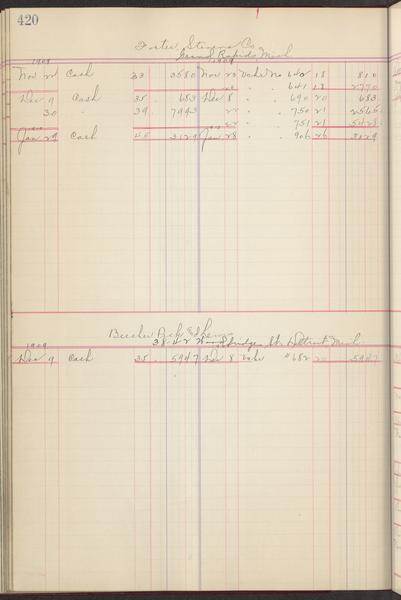 420
Foster Stevens Co
Grand Rapids Mich
1909 1909
Nov 22 Cash 33 3580 Nov 20 Vchr No 640 18 810
22 " " 641 18 2770
Dec 9 Cash 35 683 Dec 8 " " 690 20 683
30 " 39 7993 " " 750 21 2565
" " 751 21 5428
1910 1910
Jan 29 Cash 3129 Jan 28 " " 906 26 3129
Beecher Peck & Lewis
38-42 Woodbridge St. Detroit Mich
1909
Dec 9 Cash 35 5947 Dec 8 Vchr # 682 20 5947